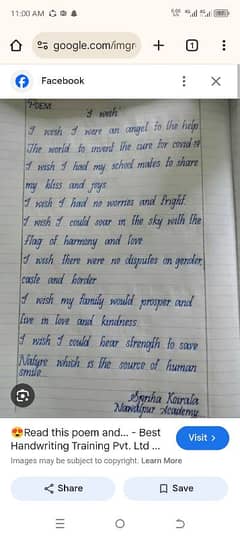 11:00 AM
google.com/imgr
1
Facebook
POEM
'I wish'
I wish I were an angel to the help
The world to invent the cure for covid-19
I wish I had my school mates to share
my bliss and joys
I wish I had no worries and fright
I wish I could soar in the sky with the
flag of harmony and love
I wish there were no disputes on gender,
caste and border
I wish my family would prosper and
live in love and kindness
I wish I could bear strength to save
Nature which is the source of human
smile
Spriha Koirala
Nandipur Academy
😍Read this poem and... - Best
Handwriting Training Pvt. Ltd ...
Visit >
Images may be subject to copyright. Learn More
Share
Save